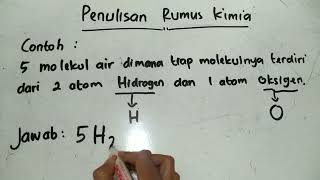 Penulisan Rumus Kimia
Contoh :
5 molekul air dimana tiap molekulnya terdiri
dari 2 atom Hidrogen dan 1 atom Oksigen.
H O
Jawab : 5H2